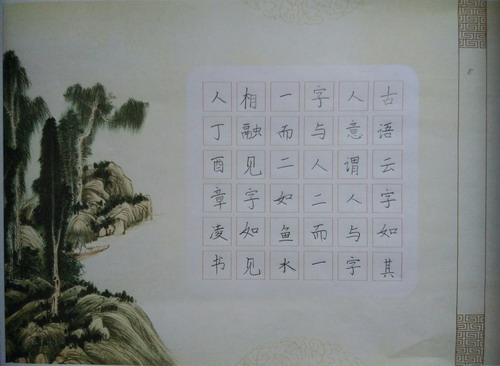 古语云字如其
人意谓人与字
字与人二而一
一而二如鱼水
相融见字如见
人丁酉章凌书